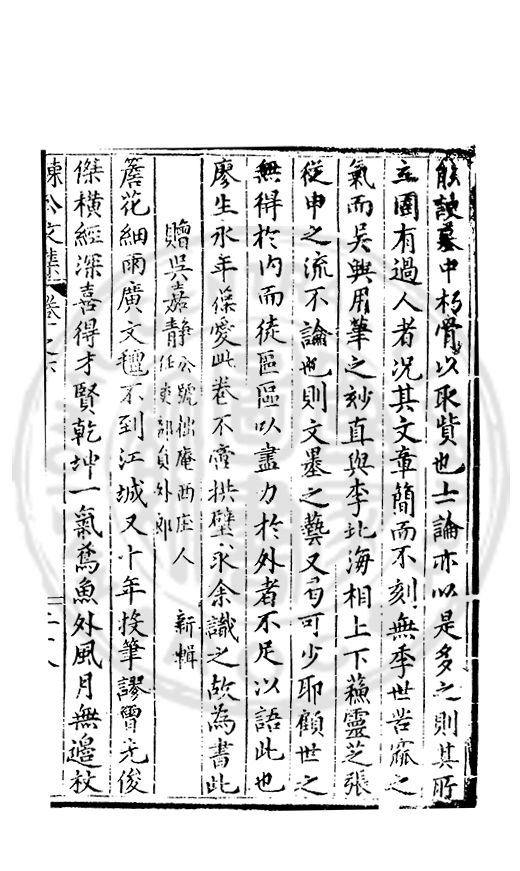 能諛墓中朽骨以取貲也士論亦以是多之則其所
立固有過人者况其文章簡而不刻無季世苦窳之
氣而吳興用筆之妙直與李北海相上下蘓靈芝張
從申之流不論也則文墨之藝又曷可少耶顧世之
無得於内而徒區區以盡力於外者不足以語此也
廖生永年葆愛此卷不啻拱璧求余識之故為書此
贈吳嘉靜公號怡庵西庄人任爽部員外郎 新輯
簷花細雨廣文氊不到江城又十年投筆謬曾先俊
傑横經深喜得才賢乾坤一氣鳶魚外風月無邉
文集卷